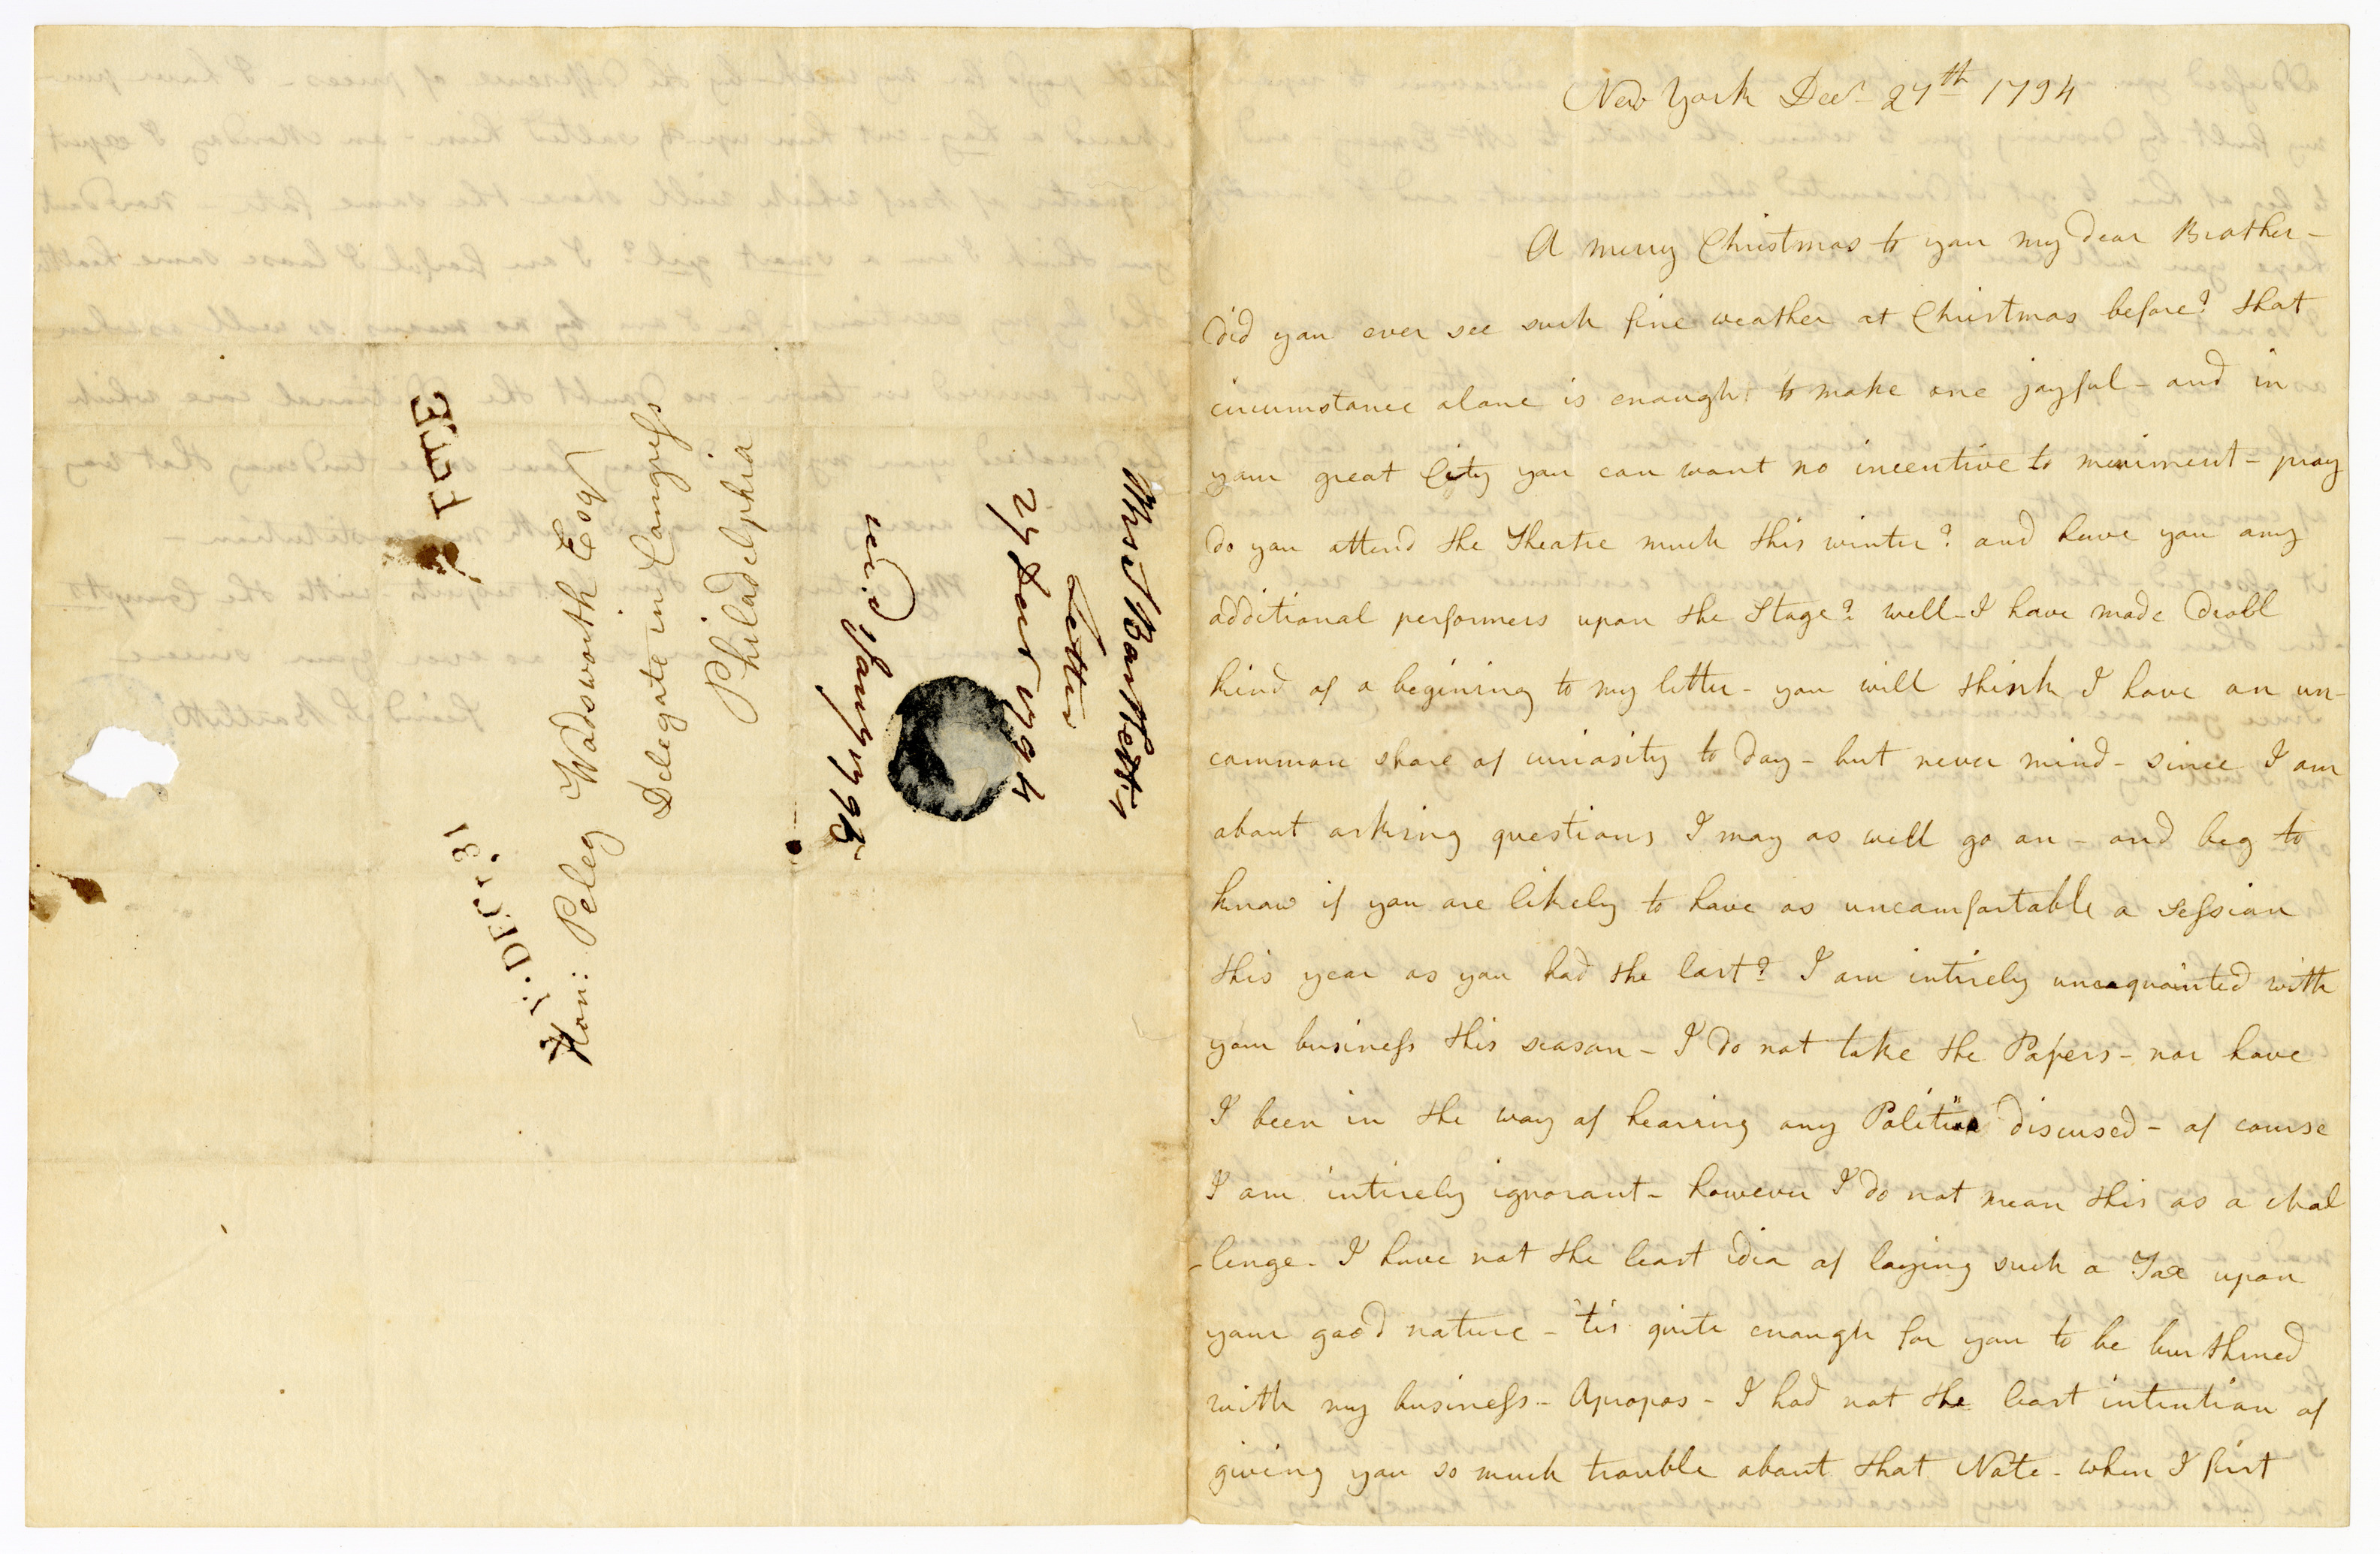 New York Decr 27th 1794
A merry Christmas to you my dear Brother -
did you ever see such fine weather at Christmas before? that
circumstance alone is enough to make one joyful - and in
your great City you can want no incentive to meriment - pray
do you attend the Theatre much this winter? and have you any
additional performers upon the Stage? well - I have made droll
kind of a begining to my letter - you will think I have an un-
common share of curiosity to day - but never mind - since I am
about asking questions I may as well go on - and beg to
know if you are likely to have as uncomfortable a session
this year as you had the last? I am intirely unacquainted with
your business this season - I do not take the Papers - nor have
I been in the way of hearing any Politics discused - of course
I am intirely ignorant - however I do not mean this as a chal
-lenge - I have not the least idea of laying such a Tax upon
your good nature - 'tis quite enough for you to be burthned
with my business - Apropos - I had not the least intention of
giving you so much trouble about that Note - when I first
Hon: Peleg Wadsworth Esqr
Delegate in Congress
Philadelphia
FREE
N. Y. DEC. 31
Mrs Bartlett's
Letter
27 Decr 1794
recd Jany 1795